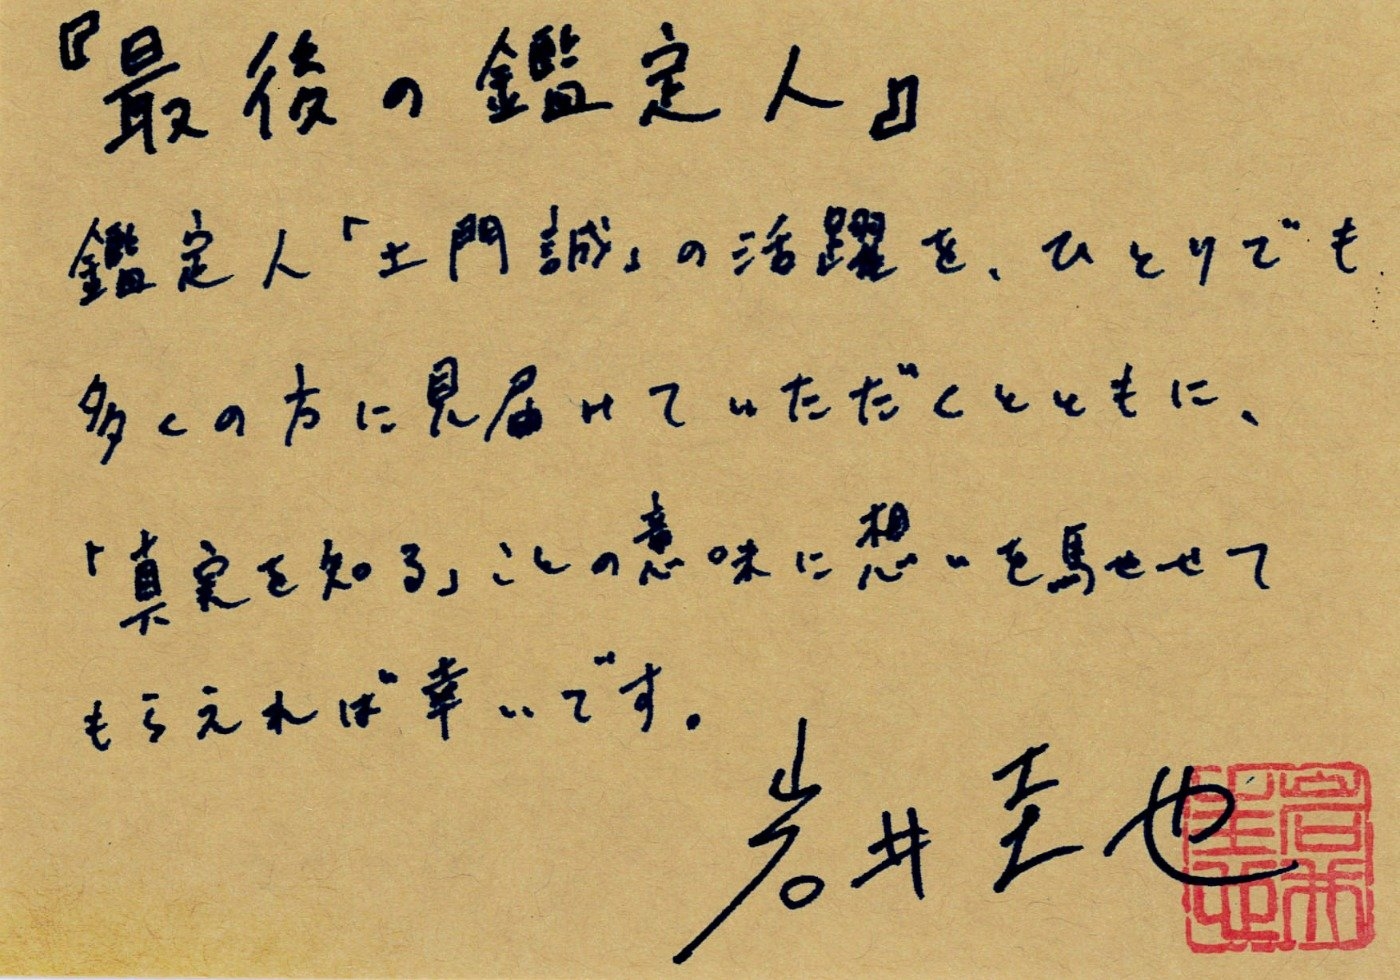 『最後の鑑定人』
鑑定人「土門誠」の活躍を、ひとりでも
多くの方に見届けていただくとともに、
「真実を知る」ことの意味に想いを馳せて
もらえれば幸いです。
岩井圭也
岩井圭也